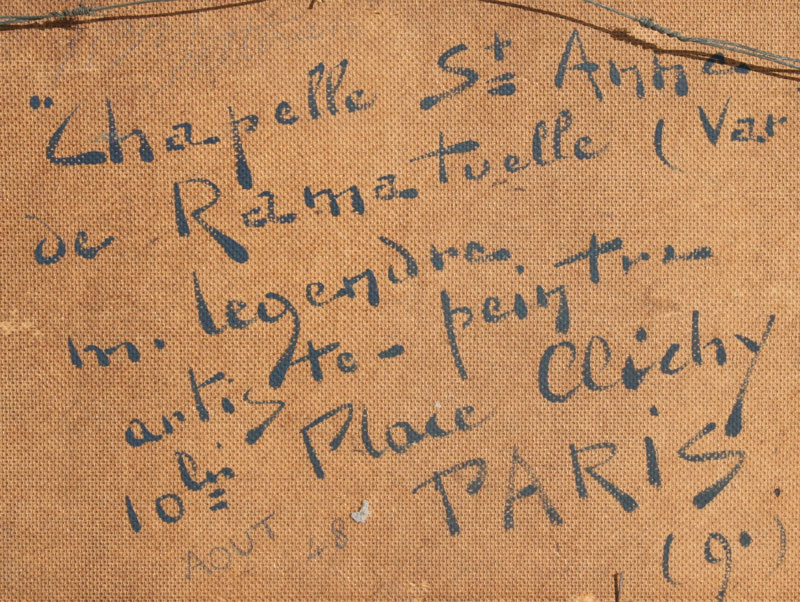 "Chapelle St Anne
de Ramatuelle (Var
m. legendre
artiste-peintre
10bis Place Clichy
PARIS
(9e)
AOUT 48